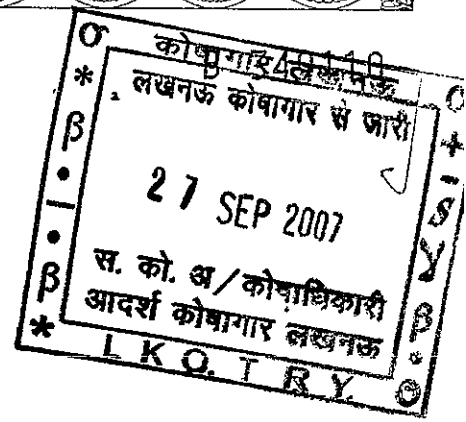 कोषागार लखनऊ
लखनऊ कोषागार से जारी
27 SEP 2007
स. को. अ/कोषाधिकारी
आदर्श कोषागार लखनऊ
L K O. T R Y.